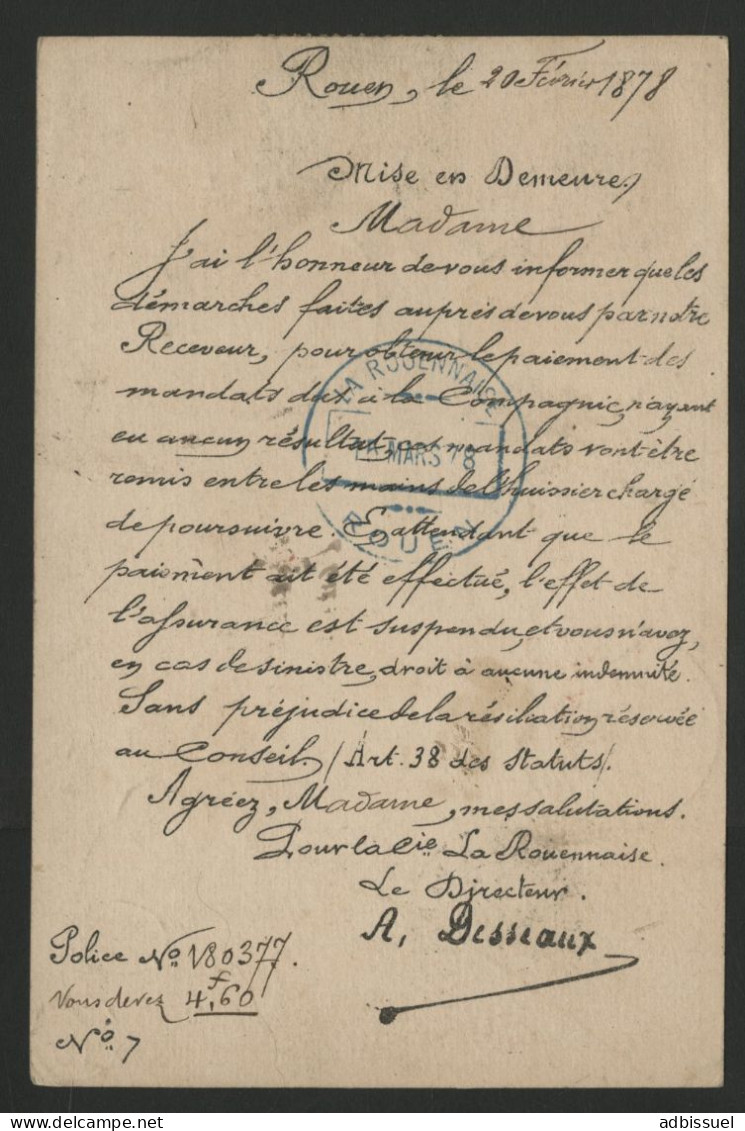 Rouen, le 20 Février 1878
Mise en Demeure,
Madame
J'ai l'honneur de vous informer que les
démarches faites auprès de vous par notre
Receveur, pour obtenir le paiement des
mandats dûs à la Compagnie, n'ayant
eu aucun résultat, ces mandats vont être
remis entre les mains de l'huissier chargé
de poursuivre. En attendant que le
paiement ait été effectué, l'effet de
l'assurance est suspendu, et vous n'avez,
en cas de sinistre, droit à aucune indemnité.
Sans préjudice de la résiliation réservée
au Conseil. (Art. 38 des Statuts).
Agréez, Madame, mes salutations.
Pour la Cie La Rouennaise.
Le Directeur.
A, Desseaux
LA ROUENNAISE
MARS 78
ROUEN
Police No. 180377.
Vous devez 4f,60
No. 7
delcampe.net
adbissuel